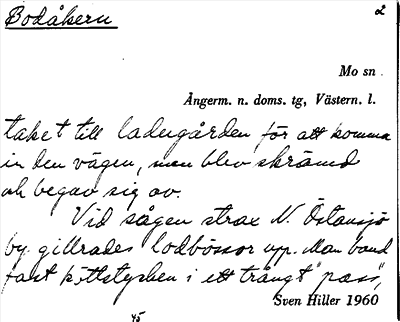 Bodåkern
2
Mo sn.
Ångerm. n. doms. tg, Västern. l.
taket till ladugården för att komma
in den vägen, men blev skrämd
och begav sig av.
Vid sågen strax N. Östansjö
by gillrades lodbössor upp. Man band
fast köttstycken i ett trångt "pass",
Sven Hiller 1960
45